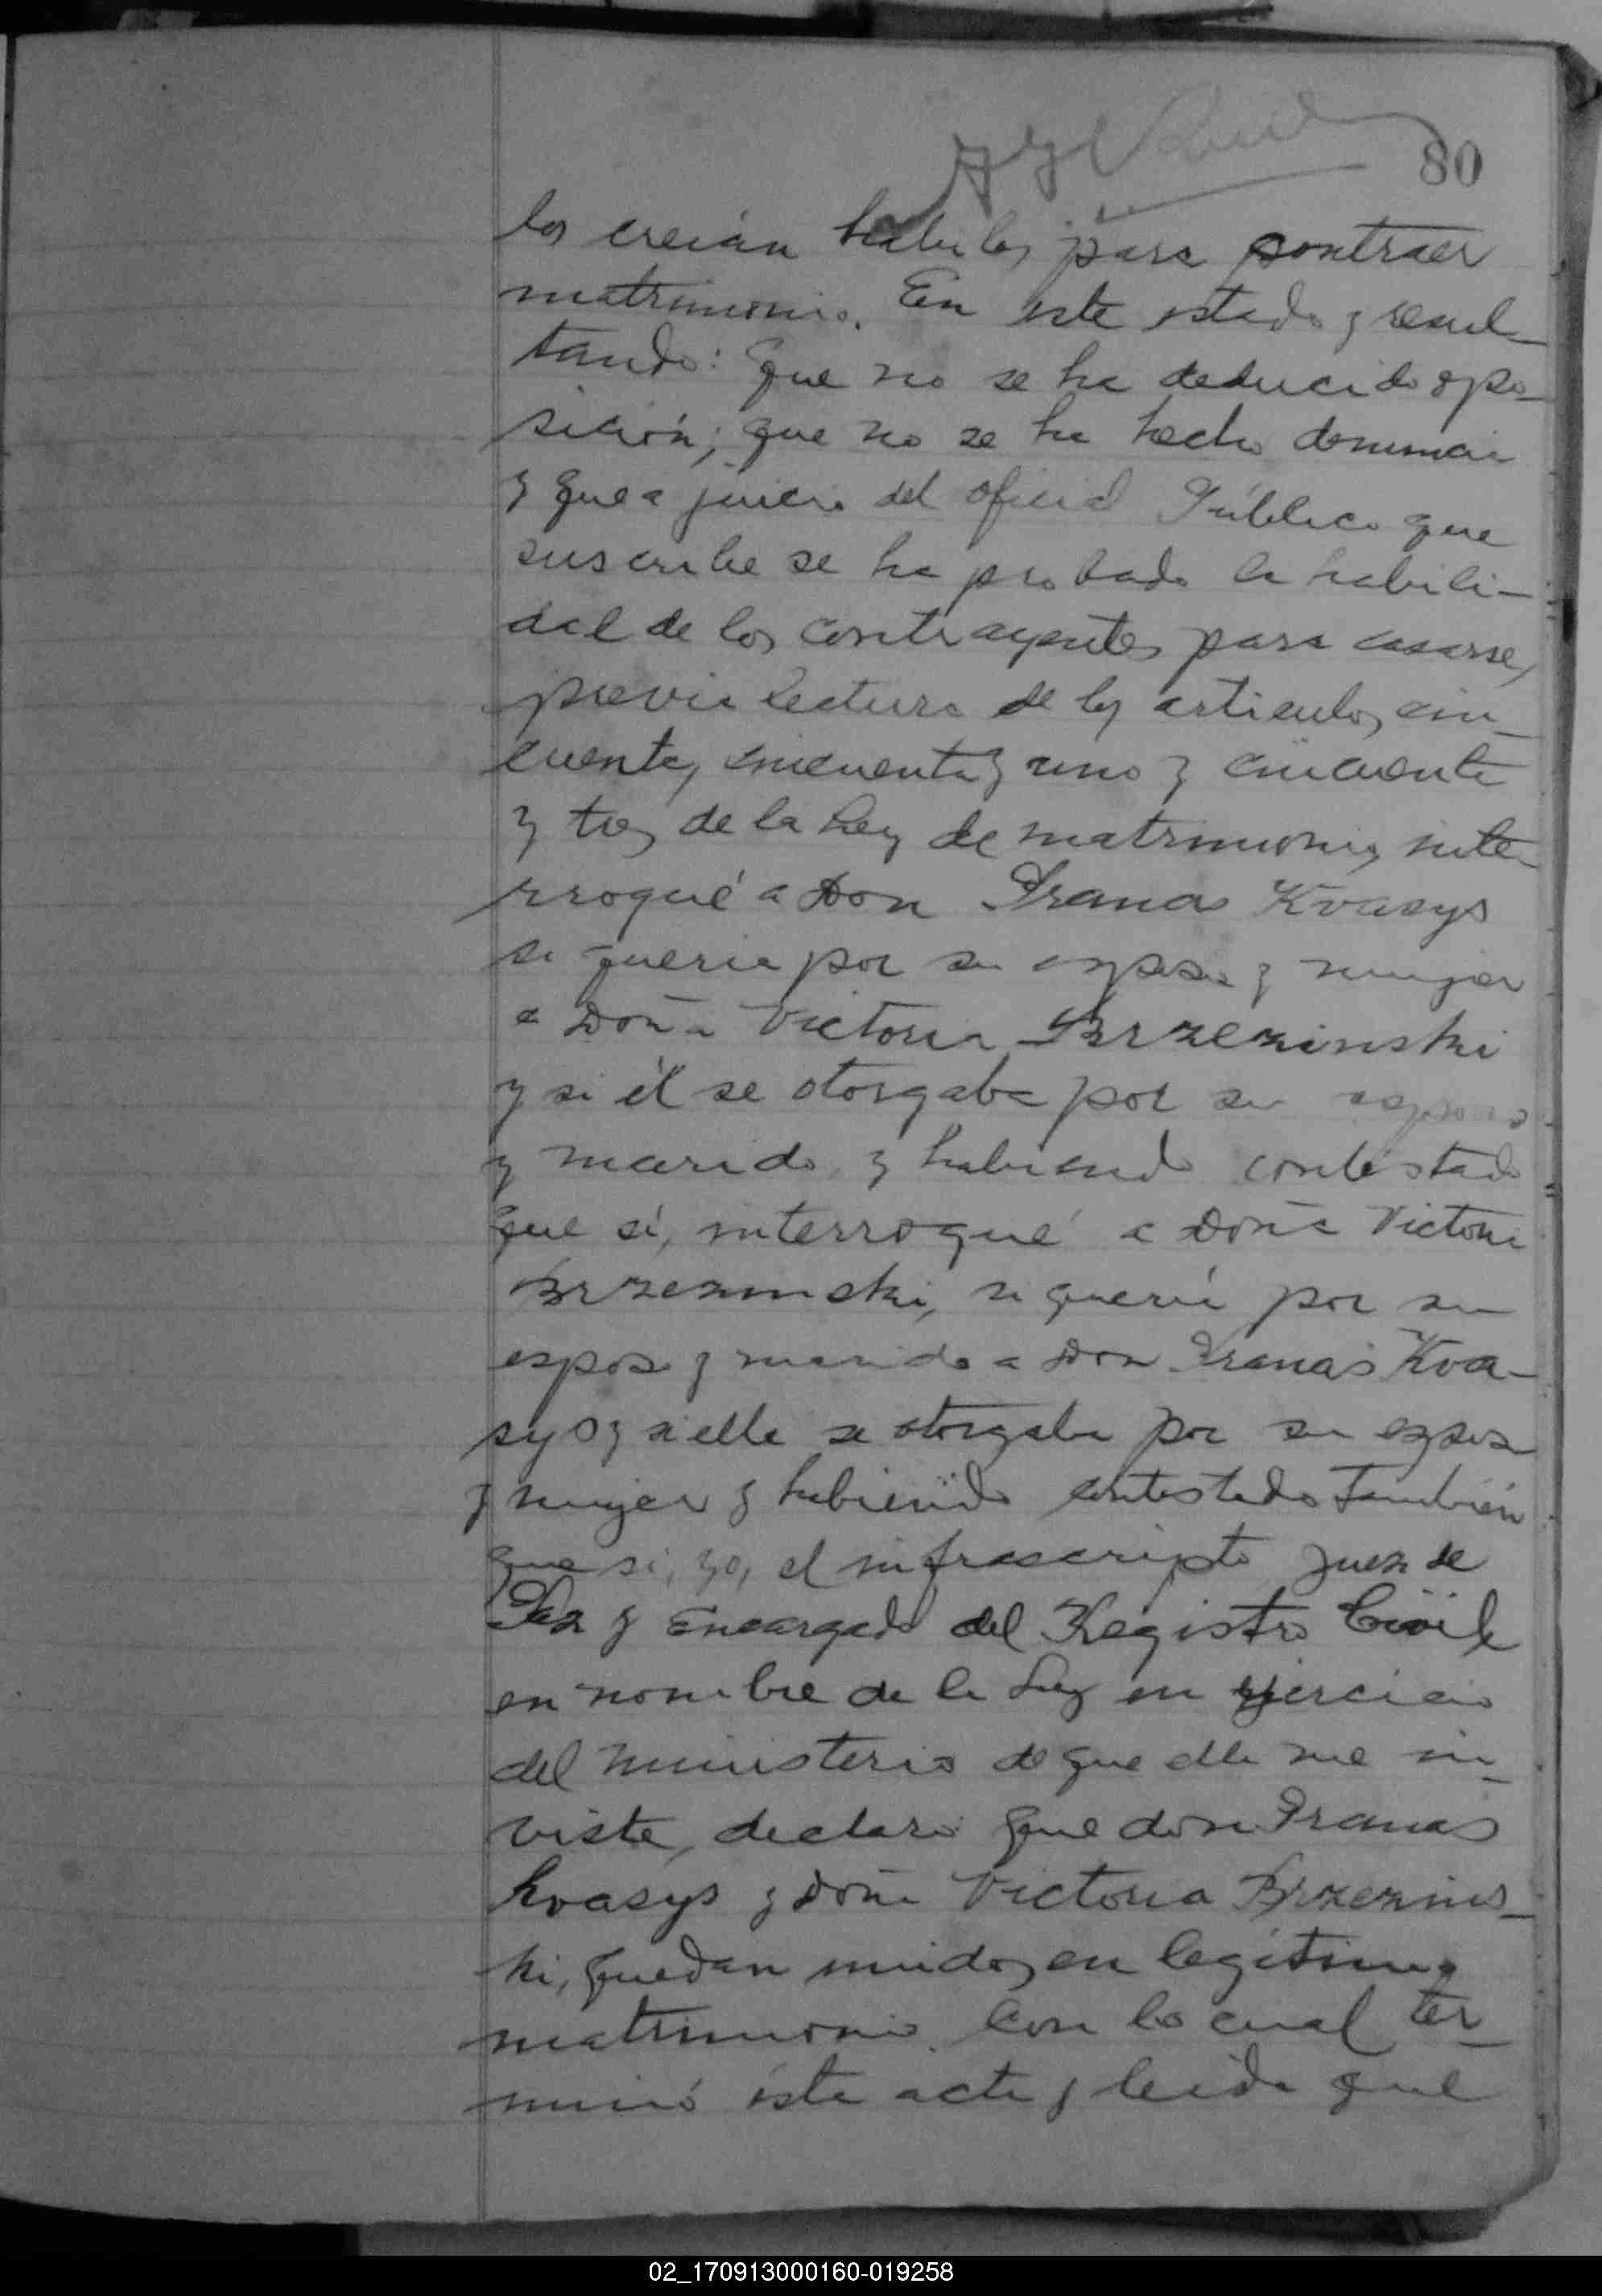 80
los creían habiles para contraer
matrimonio. En este estado y resul-
tando: que no se ha deducido opo-
sición; que no se ha hecho denuncia
y que a juicio del oficial Público que
suscribe se ha probado la habili-
dad de los contrayentes para casarse,
previa lectura de los articulos, cin-
cuenta, cincuenta y uno y cincuenta
y tres de la Ley de matrimonio, inte-
rrogué a Don Pranas Kvasys
si queria por su esposa y mujer
a Doña Victoria Brzezinski
y si él se otorgaba por su esposo
y marido, y habiendo contestado
que sí, interrogué a Doña Victoria
Brzezinski, si quería por su
esposo y marido a Don Pranas Kva-
sys y si ella se otorgaba por su esposa
y mujer y habiendo contestado también
que si, yo, el infrascripto Juez de
Paz y Encargado del Registro Civil
en nombre de la Ley en ejercicio
del ministerio de que ella me in-
viste, declaro que don Pranas
Kvasys y doña Victoria Brzezins-
ki, quedan unidos en legítimo
matrimonio. Con lo cual ter-
minó éste acto y leida que
02_170913000160-019258